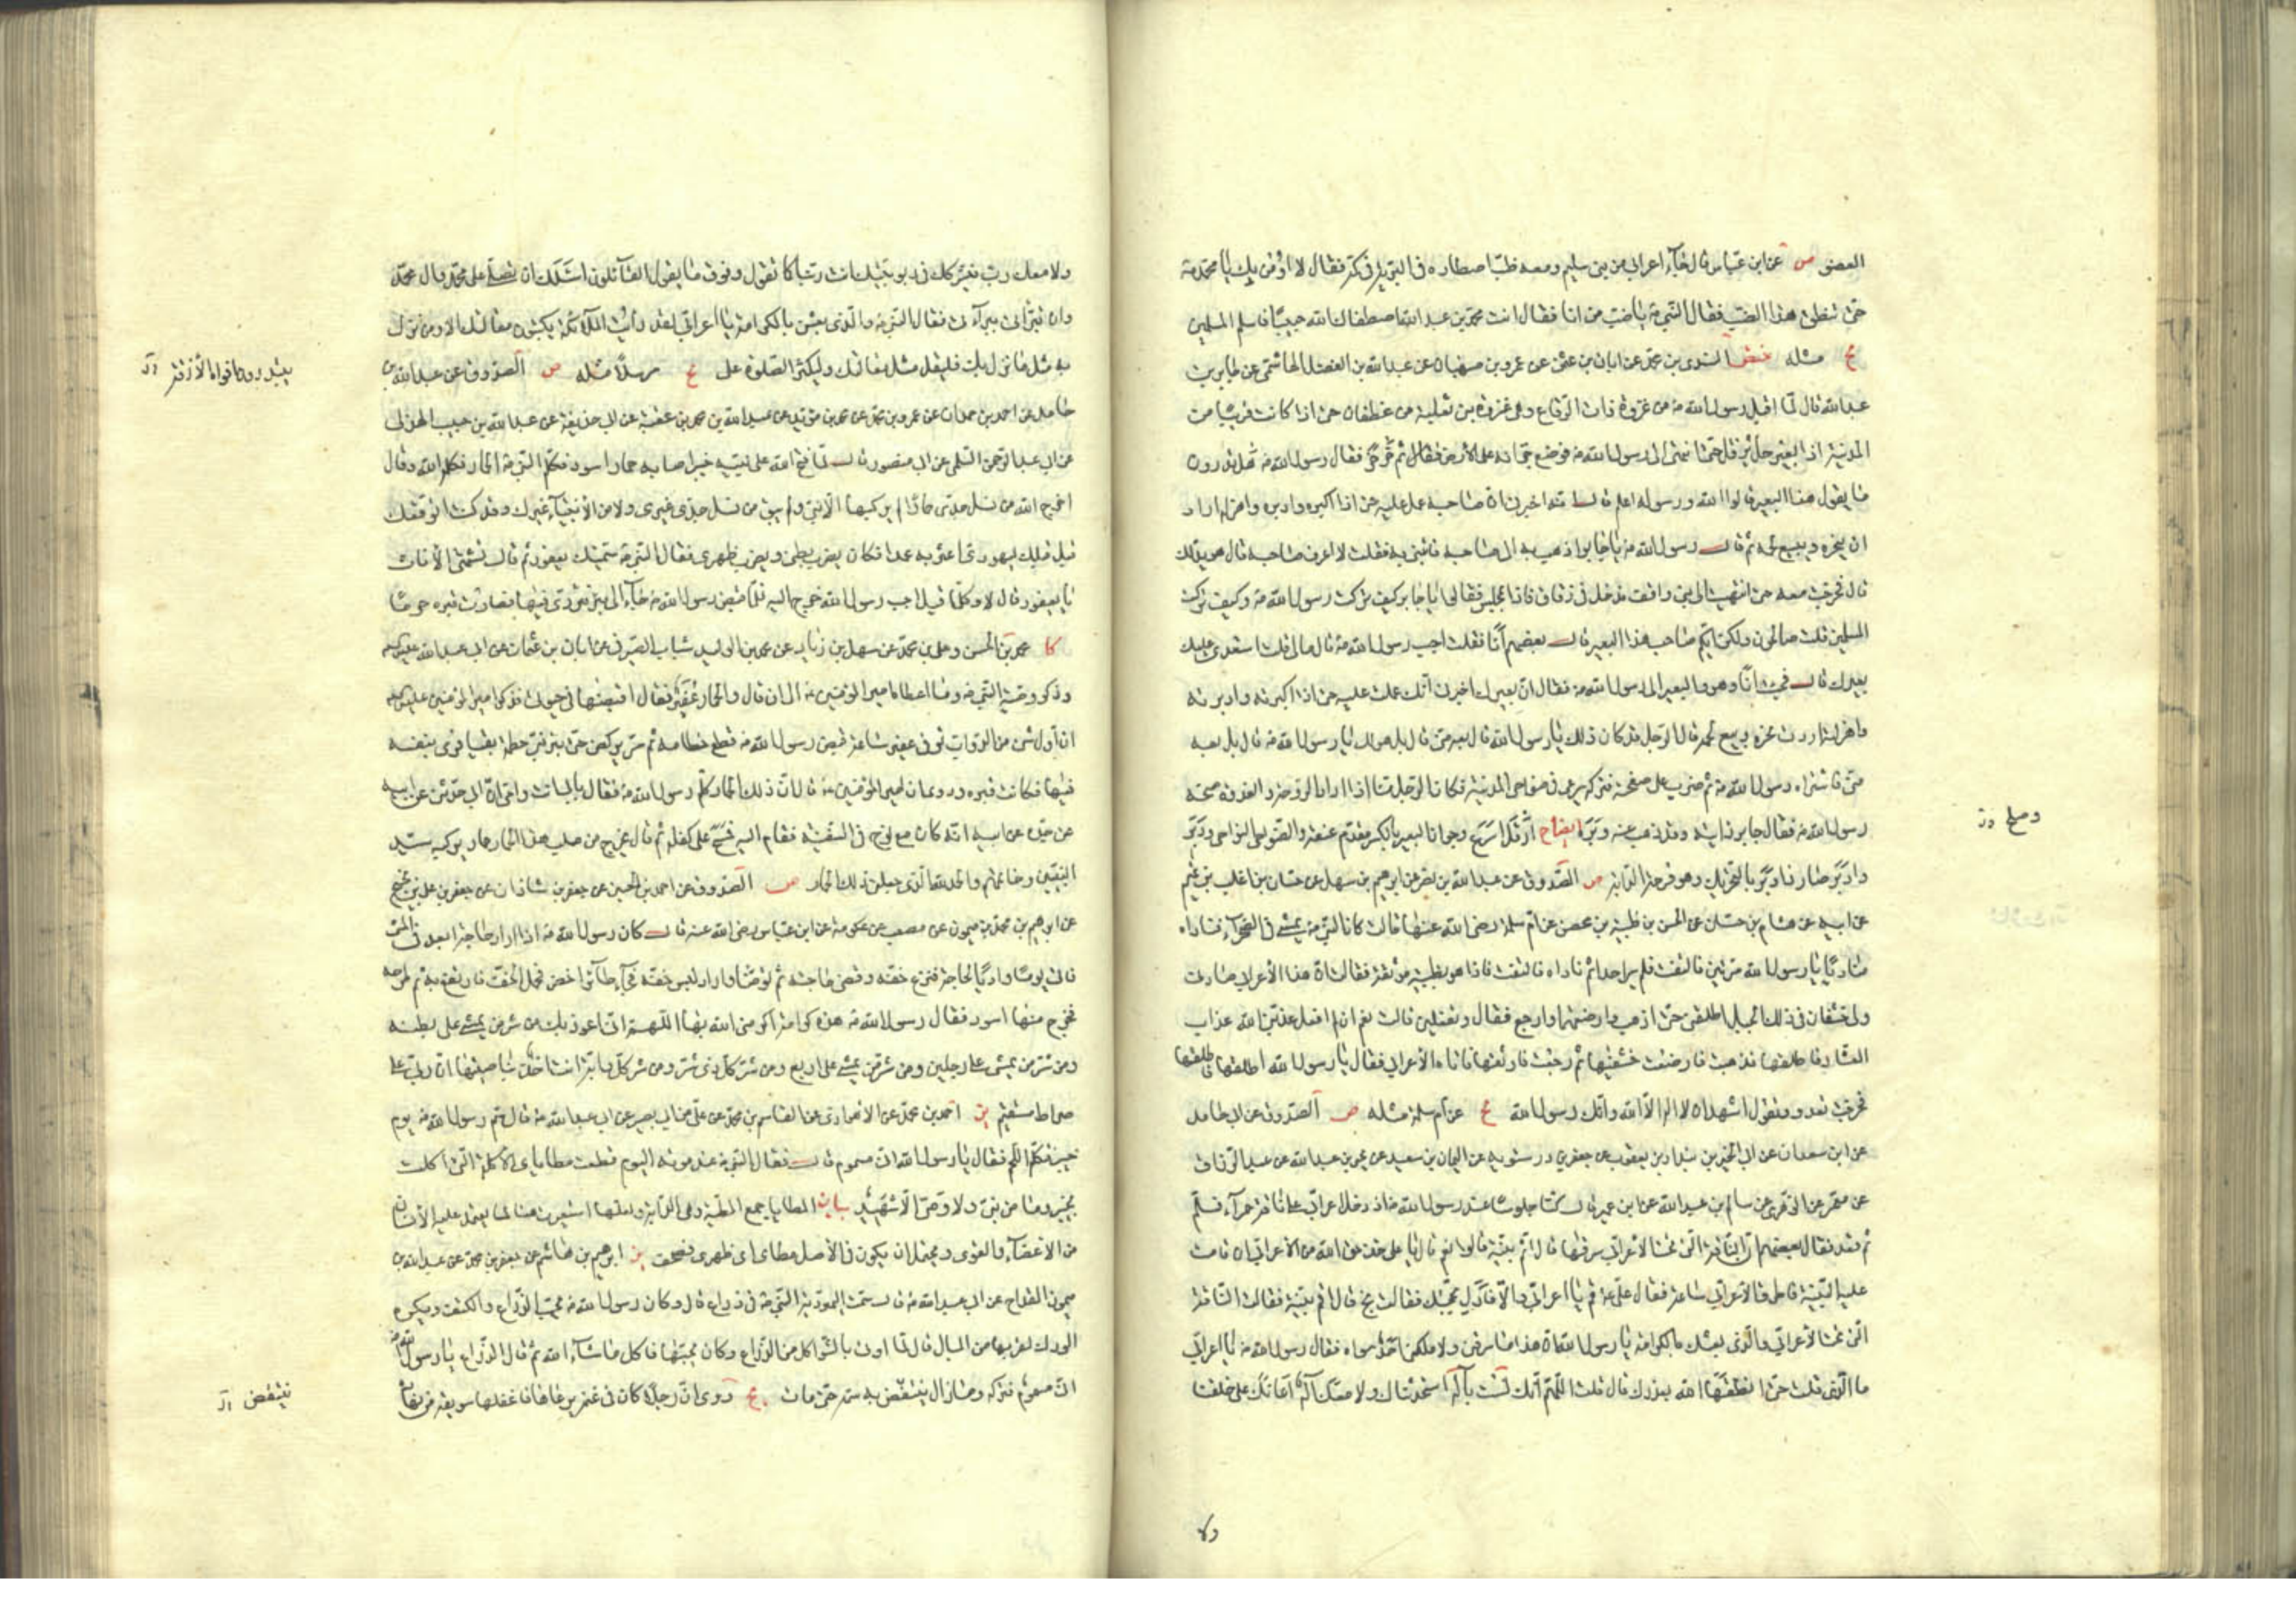 العضو ص عن ابن عباس قال جاء اعرابي من بني سليم ومعه ضب اصطاده في البرية في كمه فقال لا اؤمن بك يا محمد
حتى ينطق هذا الضب فقال النبي ص يا ضب من انا فقال انت محمد بن عبد الله اصطفاك الله حبيبا فاسلم السلمي
يج مثله ختص السندي بن محمد عن ابان بن عثمان عن عمرو بن صهبان عن عبد الله بن الفضل الهاشمي عن جابر بن
عبد الله قال لما اقبل رسول الله ص من غزوة ذات الرقاع وهي غزوة بني ثعلبة من غطفان حتى اذا كانت قريبا من
المدينة اذا بعير حل يرقل حتى انتهى الى رسول الله ص فوضع جرانه على الارض ثم خرخر فقال رسول الله ص هل تدرون
ما يقول هذا البعير قالوا الله ورسوله اعلم قال انه اخبرني ان صاحبه عمل عليه حتى اذا اكبره وادبره واهزله اراد
ان ينحره ويبيع لحمه ثم قال رسول الله ص يا جابر اذهب به الى صاحبه فائتني به فقلت لا اعرف صاحبه قال هو يدلك
قال فخرجت معه حتى انتهيت الى بني واقف فدخل في زقاق فاذا بمجلس فقالوا يا جابر كيف تركت رسول الله ص وكيف تركت
المسلمين قلت صالحون ولكن ايكم صاحب هذا البعير قال بعضهم انا فقلت اجب رسول الله ص قال ما لي قلت استعدى عليك
بعيرك قال فجئت انا وهو والبعير الى رسول الله ص فقال ان بعيرك اخبرني انك عملت عليه حتى اذا اكبرته وادبرته
واهزلته اردت نحره وبيع لحمه قال الرجل قد كان ذلك يا رسول الله قال بعه مني قال بل هو لك يا رسول الله ص قال بل بعه
مني فاشتراه رسول الله ص ثم ضرب على صفحته فتركه يرعى في ضواحي المدينة فكان الرجل منا اذا اراد الروحة والغدوة منحه
رسول الله ص فقال جابر رأيته وقد ذهب عنه دبره ايضاح ارقل اسرع وجران البعير بالكسر مقدم عنقه والضواحي النواحي ودبر
وادبر صار ذا دبر بالتحريك وهو قرحة الدابة ص الصدوق عن عبد الله بن نضر عن ابرهيم بن سهل عن حسان بن اغلب بن تميم
عن ابيه عن هشام بن حسان عن الحسن بن ظبية بن محصن عن ام سلمة رضي الله عنها قالت كان النبي ص يمشي في الصحراء فناداه
مناد يا رسول الله مرتين فالتفت فلم ير احدا ثم ناداه فالتفت فاذا هو بظبية موثقة فقالت ان هذا الاعرابي صادني
ولي خشفان في ذلك الجبل اطلقني حتى اذهب وارضعهما وارجع فقال وتفعلين قالت نعم ان لم افعل عذبني الله عذاب
العشار فاطلقها فذهبت فارضعت خشفيها ثم رجعت فاوثقها فاتاه الاعرابي فقال يا رسول الله اطلقها فاطلقها
فخرجت تعدو وتقول اشهد ان لا اله الا الله وانك رسول الله يج عن ام سلمة مثله ص الصدوق عن ابي حامد
عن ابن سعدان عن ابي الخير بن بندار بن يعقوب عن جعفر بن درستويه عن اليمان بن سعيد عن يحيى بن عبد الله عن عبد الرزاق
عن معمر عن الزهري عن سالم بن عبد الله عن ابن عمر قال كنا جلوسا عند رسول الله ص اذ دخل اعرابي على ناقة حمراء فسلم
ثم قعد فقال بعضهم ان الناقة التي تحت الاعرابي سرقها قال اثم بينة قالوا نعم قال يا علي خذ حق الله من الاعرابي ان قامت
عليه البينة فاطرق الاعرابي ساعة فقال علي ع قم يا اعرابي والا فأدل بحجتك فقالت
التي تحت الاعرابي والذي بعثك بالكرامة يا رسول الله ان هذا ما سرقني ولا ملكني احد سواه فقال رسول الله ص يا اعرابي
ما الذي قلت حتى انطقها الله بعذرك قال قلت اللهم انك لست باله استحدثناك ولا معك اله اعانك على خلقنا
ولا
وصلح
ولا معك رب فيشركك في ربوبيتك انت ربنا كما تقول وفوق ما يقول القائلون اسئلك ان تصلي على محمد وال محمد
وان تبرئني ببراءتي فقال النبي ص والذي بعثني بالكرامة يا اعرابي لقد رأيت الملائكة يكتبون مقالتك الا ومن نزل
به مثل ما نزل بك فليقل مثل مقالتك وليكثر الصلوة علي يج مرسلا مثله ص الصدوق عن عبد الله بن
حامد عن احمد بن حمدان عن عمرو بن محمد عن محمد بن مؤيد عن عبد الله بن محمد بن عقبة عن ابي حذيفة عن عبد الله بن حبيب الهذلي
عن ابي عبد الرحمن السلمي عن ابي منصور قال لما فتح الله على نبيه خيبر اصابه حمار اسود فكلم النبي ص الحمار فكلمه الله وقال
اخرج الله من نسل جدي حمارا لم يركبها الا نبي ولم يبق من نسل جدي غيري ولا من الانبياء غيرك وقد كنت اتوقعك
قبل قبلك ليهودي اعثر به عمدا فكان يضرب بطني ويضرب ظهري فقال النبي ص سميتك يعفور ثم قال تشتهي الاناث
يا يعفور قال لا وكلما قيل اجب رسول الله خرج اليه فلما قبض رسول الله ص جاء الى بئر فتردى فيها فصارت قبره جزعا
كا محمد بن الحسن وعلي بن محمد عن سهل بن زياد عن محمد بن الوليد شباب الصيرفي عن ابان بن عثمان عن ابي عبد الله عليه السلم
وذكر وصية النبي ص وما اعطاه امير المؤمنين ع الى ان قال والحمار عفير فقال اقبضها في حيوتي فذكر امير المؤمنين عليه السلم
ان اول شئ من الدواب توفي عفير ساعة قبض رسول الله ص قطع خطامه ثم مر يركض حتى بئر بني خطمة بقبا فرمى بنفسه
فيها فكانت قبره وروي ان امير المؤمنين ع قال ان ذلك الحمار كلم رسول الله ص فقال بابي انت وامي ان ابي حدثني عن ابيه
عن جده عن ابيه انه كان مع نوح في السفينة فقام اليه فمسح على كفله ثم قال يخرج من صلب هذا الحمار حمار يركبه سيد
النبيين وخاتمهم والحمد لله الذي جعلني ذلك الحمار ص الصدوق عن احمد بن الحسين عن جعفر بن شاذان عن جعفر بن علي بن نجيح
عن ابرهيم بن محمد بن ميمون عن مصعب عن عكرمة عن ابن عباس رضي الله عنه قال كان رسول الله ص اذا اراد حاجة ابعد في المشي
فاتى يوما واديا لحاجة فنزع خفه وقضى حاجته ثم توضأ واراد لبس خفه فجاء طائر اخضر فحمل الخف فارتفع به ثم طرحه
فخرج منها اسود فقال رسول الله ص هذه كرامة اكرمني الله بها اللهم اني اعوذ بك من شر من يمشي على بطنه
ومن شر من يمشي على رجلين ومن شر من يمشي على اربع ومن شر كل ذي شر ومن شر كل دابة انت اخذ بناصيتها ان ربي على
صراط مستقيم ير احمد بن محمد عن الاهوازي عن القاسم بن محمد عن علي عن ابي بصير عن ابي عبد الله ع قال سم رسول الله ص يوم
خيبر فتكلم اللحم فقال يا رسول الله اني مسموم قال فقال النبي ص عند موته اليوم قطعت مطاياي الاكلة التي اكلت
بخيبر وما من نبي ولا وصي الا شهيد بيان المطايا جمع المطية وهي الدابة ولعلها استعيرت هنا لما يعتمد عليه الانسان
من الاعضاء والقوى ويحتمل ان يكون في الاصل مطاي اي ظهري فصحف ير ابرهيم بن هاشم عن جعفر بن محمد عن عبد الله بن
ميمون القداح عن ابي عبد الله ع قال سمت اليهودية النبي ص في ذراع قال وكان رسول الله ص يحب الذراع والكتف ويكره
الورك لقربها من المبال قال لما اوتي بالشواء اكل من الذراع وكان يحبها فاكل ما شاء الله ثم قال الذراع يا رسول الله
اني مسموم فتركه وما زال ينتقض به سمه حتى مات يج روي ان رجلا كان في غنمه يرعاها فاغفلها سويعة من نهاره
ينتقض